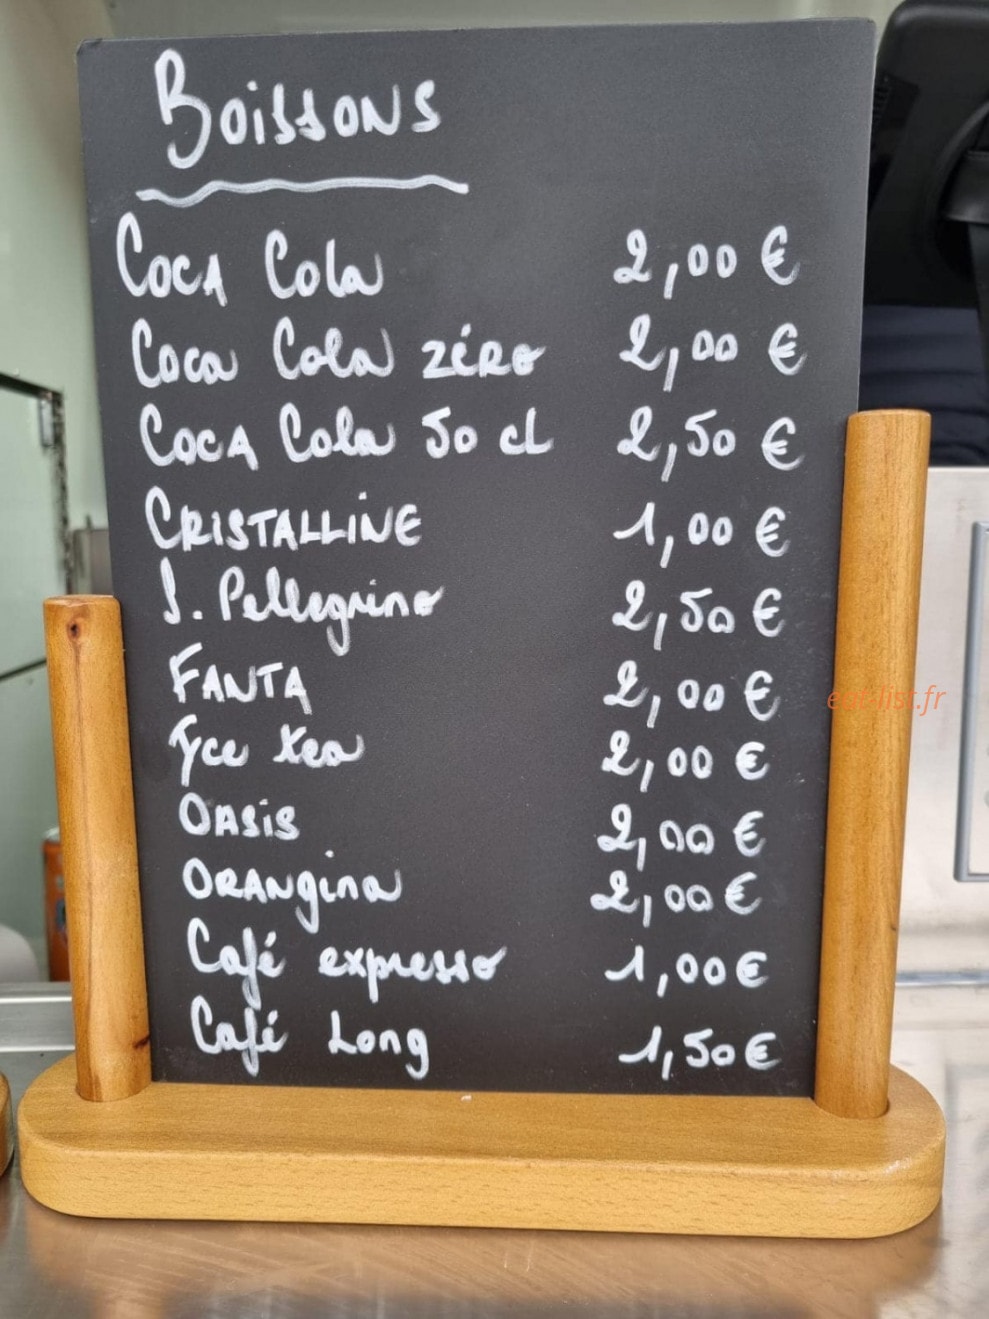 Boissons
Coca Cola 2,00 €
Coca Cola zéro 2,00 €
Coca Cola 50 cl 2,50 €
CRISTALLINE 1,00 €
S. Pellegrino 2,50 €
FANTA 2,00 €
Yce tea 2,00 €
OASIS 2,00 €
ORANgina 2,00 €
Café expresso 1,00 €
Café Long 1,50 €
eat-list.fr